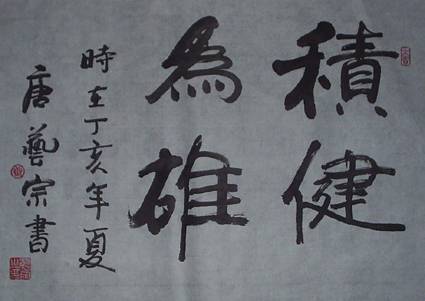 積健
為雄
時在丁亥年夏
唐藝宗書